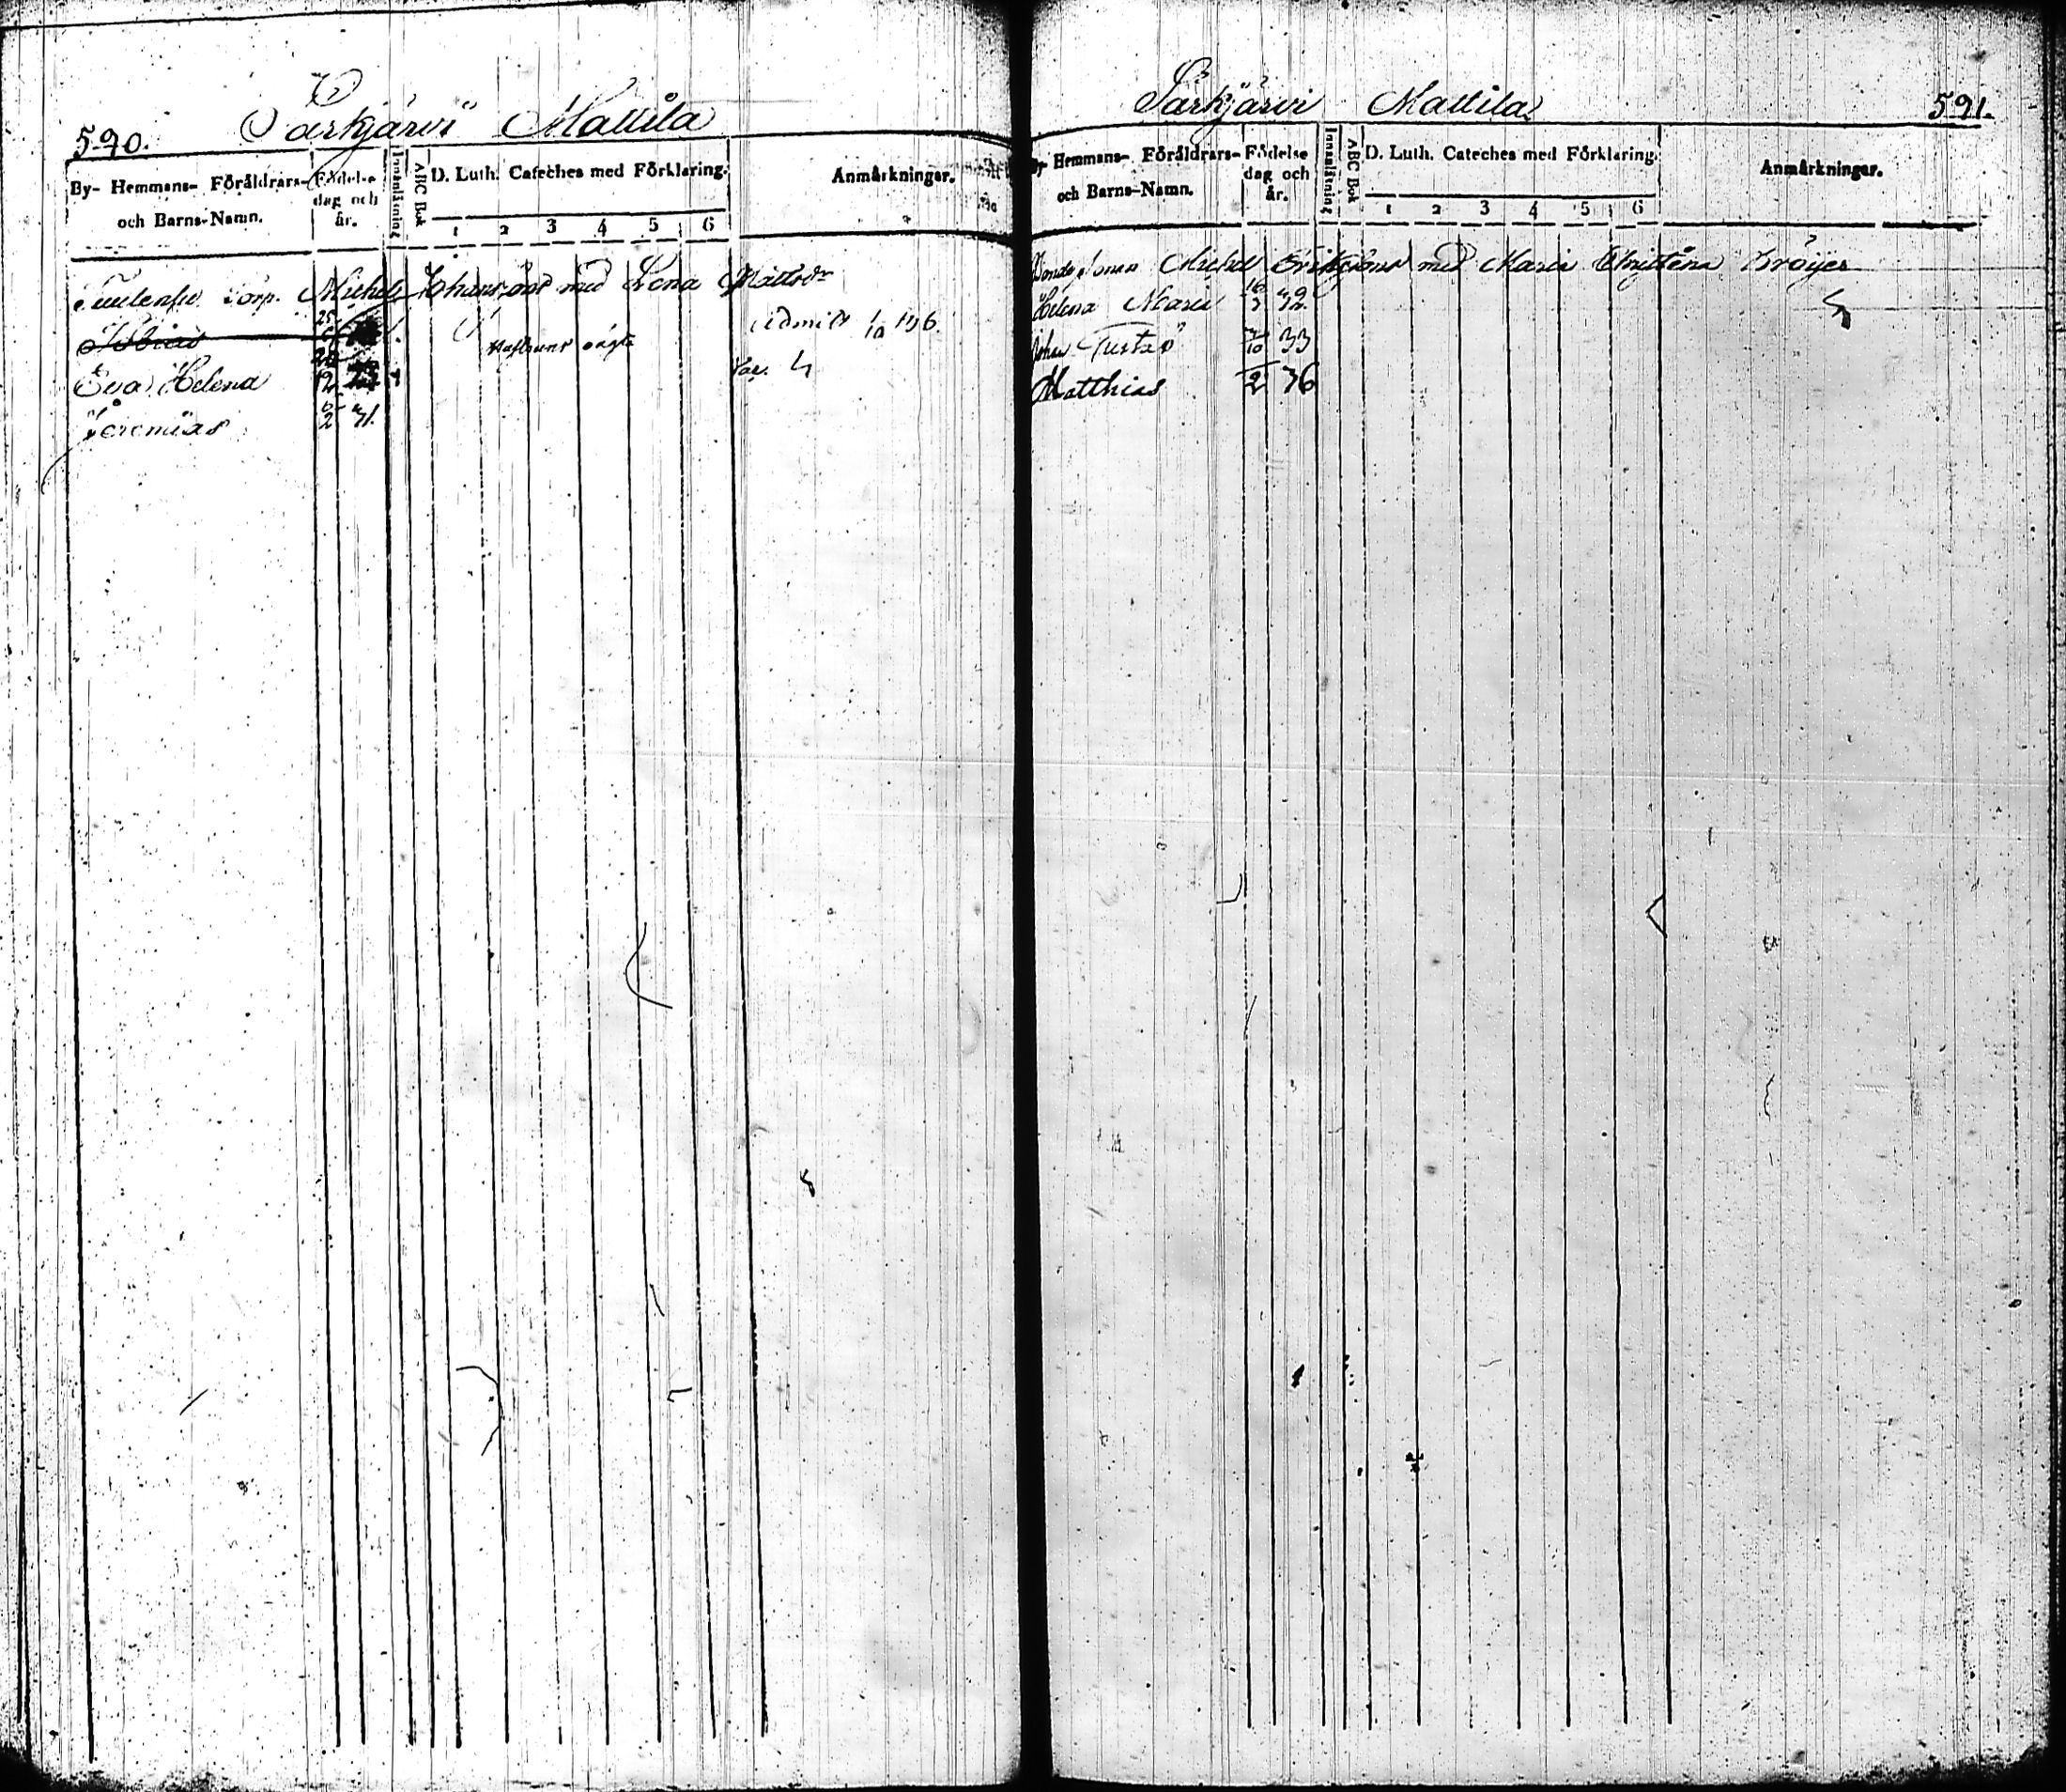 590. Särkjärvi Mattila
By- Hemmans- Föräldrars-
och Barns-Namn.
Födelse
dag och
år.
Innanläsning
ABC Bok
D. Luth. Cateches med Förklaring.
1 2 3 4 5 6
Anmärkningar.
Torp. Michel Johansson med Lena Mattsdr
Tobias 25 admitt 1/10 136.
Eva Helena 12
Jeremias 2 31.
Särkjärvi Mattila 591.
By- Hemmans- Föräldrars-
och Barns-Namn.
Födelse
dag och
år.
Innanläsning
ABC Bok
D. Luth. Cateches med Förklaring.
1 2 3 4 5 6
Anmärkningar.
Bonde sonen Michel Eriksson med Maria Christina Dröijer
Helena Maria 16
Johan Gustaf 10 33
Matthias 2 36